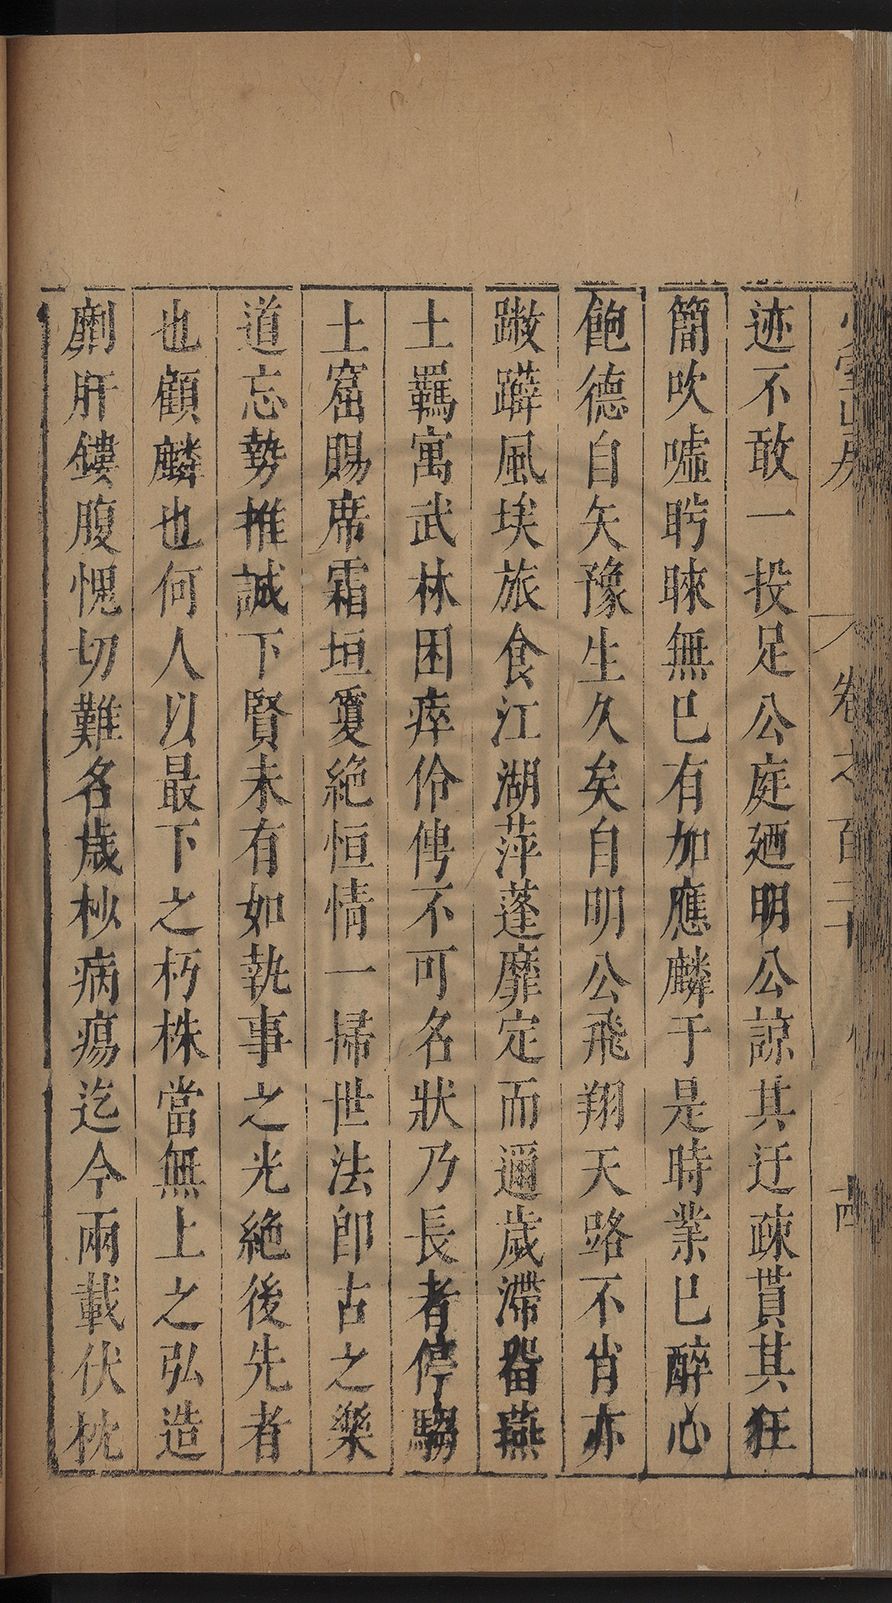 少室山房 卷之百二十 十四
迹不敢一投足公庭廼明公諒其迂疎貰其狂
簡吹噓眄睞無已有加應麟于是時業已醉心
飽德自矢豫生久矣自明公飛翔天路不肖亦
蹴躃風埃旅食江湖萍蓬靡定而邇歲滯畱燕
土羈寓武林困瘁伶俜不可名狀乃長者停騶
土窟賜席霜垣敻絶恒情一掃世法即古之樂
道忘勢推誠下賢未有如執事之光絶後先者
也顧麟也何人以最下之朽株當無上之弘造
劘肝鏤腹愧切難名歲杪病瘍迄今兩載伏枕